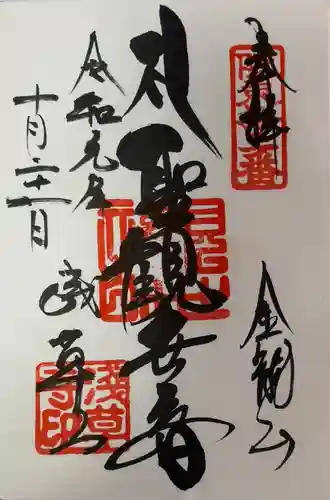 奉拝
坂東十三番
金龍山
礼 聖観世音
令和元年
十月二十一日
浅草寺
浅草寺印